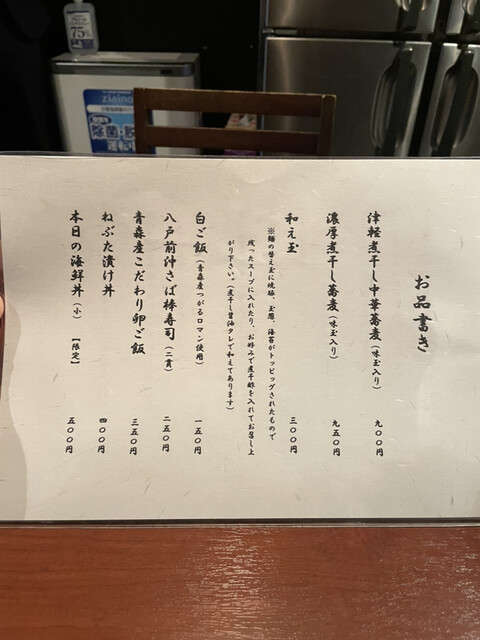 お品書き
津軽煮干し中華蕎麦（味玉入り） 九〇〇円
濃厚煮干し蕎麦（味玉入り） 九五〇円
和え玉 三〇〇円
※麺の替え玉に焼豚、玉葱、海苔がトッピングされたもので
残ったスープに入れたり、お好みで煮干酢を入れてお召し上
がり下さい。（煮干し醤油タレで和えてあります）
白ご飯（青森産つがるロマン使用） 一五〇円
八戸前沖さば棒寿司（二貫） 二五〇円
青森産こだわり卵ご飯 三五〇円
ねぶた漬け丼 四〇〇円
本日の海鮮丼（小）【限定】 五〇〇円
75%
ziaino
除菌・脱
運転中